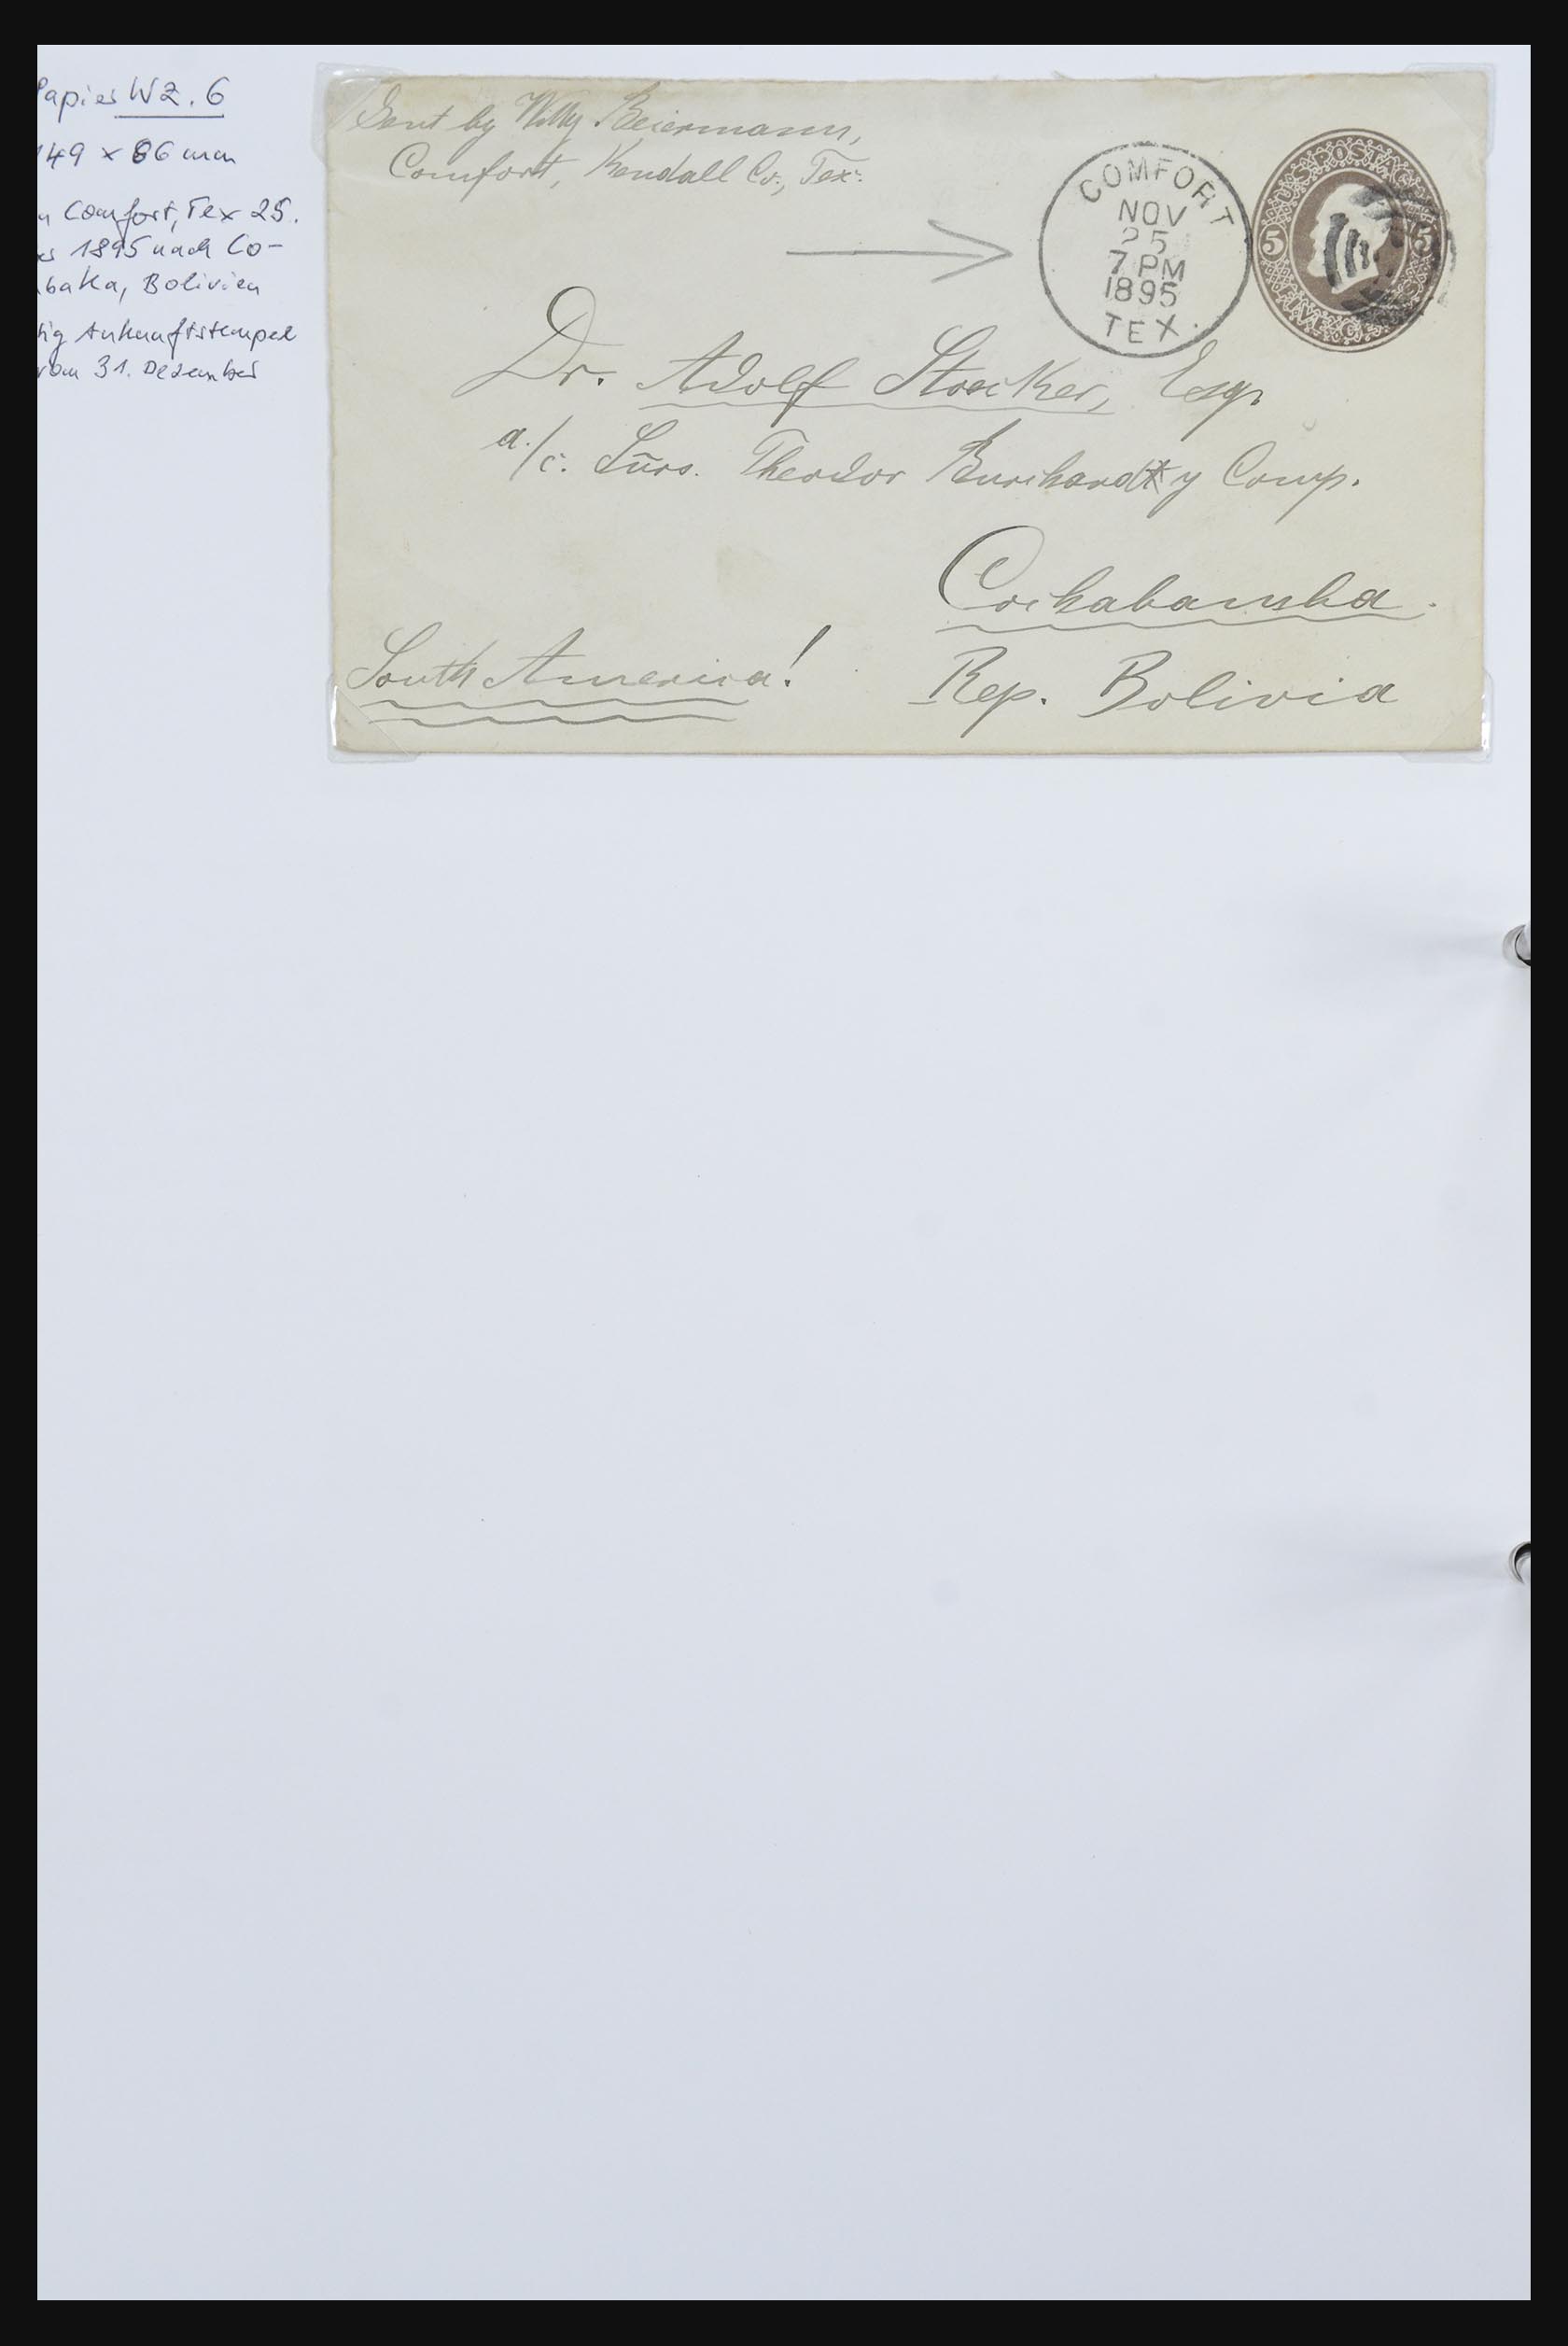 Papier WZ. 6
149 x 86 mm
Comfort, Tex 25.
1895 nach Co-
Bolivien
Ankunftstempel
vom 31. Dezember
Sent by Willy Beiermann,
Comfort, Kendall Co., Tex.
COMFORT
NOV
25
7 PM
1895
TEX.
U.S. POSTAGE
5 5
FIVE CTS.
Dr. Adolf Stoecker, Esqr.
a./c. Sũrs. Theodor Burchardt y Comp.
Cochabamba.
South America!
Rep. Bolivia